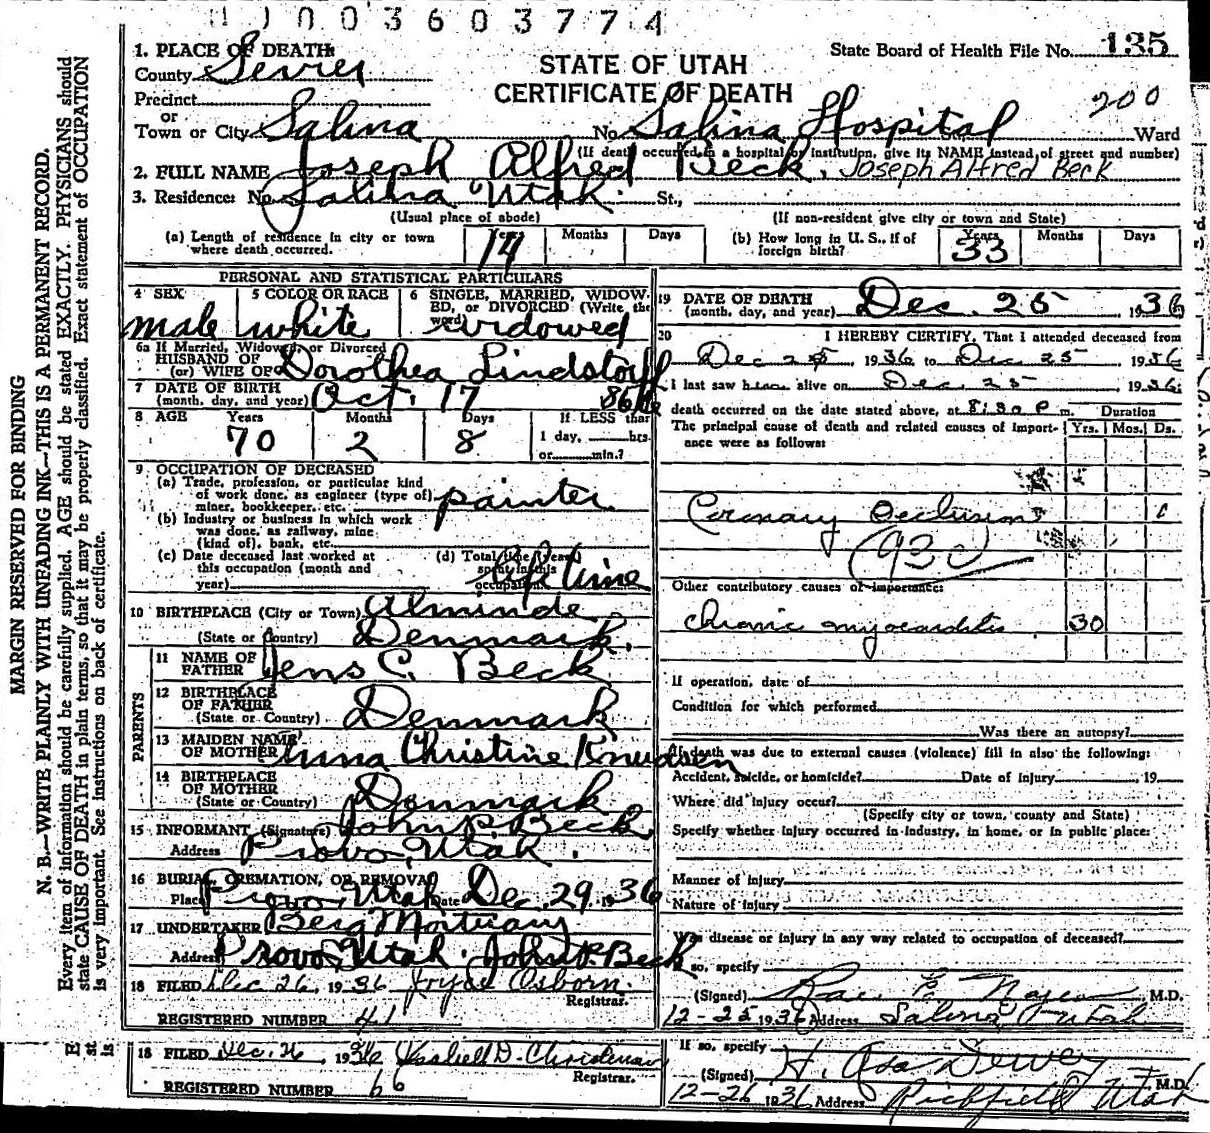 1003603774
1. PLACE OF DEATH:
County Sevier
State Board of Health File No. 135
STATE OF UTAH
CERTIFICATE OF DEATH
Precinct
or
Town or City Salina No. Salina Hospital Ward
200
(If death occurred in a hospital or institution, give its NAME instead of street and number)
2. FULL NAME Joseph Alfred Beck. Joseph Alfred Beck
3. Residence: No. Salina Utah. St.,
(Usual place of abode) (If non-resident give city or town and State)
(a) Length of residence in city or town where death occurred. Years Months Days
(b) How long in U. S., if of foreign birth? Years 33 Months Days
PERSONAL AND STATISTICAL PARTICULARS
4 SEX male
5 COLOR OR RACE white
6 SINGLE, MARRIED, WIDOWED, or DIVORCED (Write the word) widowed
6a If Married, Widowed, or Divorced
HUSBAND OF
(or) WIFE OF Dorothea Lindstorff
7 DATE OF BIRTH
(month, day, and year) Oct. 17
8 AGE Years 70 Months 2 Days 8 If LESS than 1 day, hrs. or min.?
9 OCCUPATION OF DECEASED
(a) Trade, profession, or particular kind
of work done, as engineer (type of)
miner, bookkeeper, etc. painter
(b) Industry or business in which work
was done, as railway, mine
(kind of), bank, etc.
(c) Date deceased last worked at
this occupation (month and
year)
(d) Total time (years)
spent in this
occupation Lifetime
10 BIRTHPLACE (City or Town) Alminde
(State or Country) Denmark.
PARENTS
11 NAME OF
FATHER Jens C. Beck
12 BIRTHPLACE
OF FATHER
(State or Country) Denmark
13 MAIDEN NAME
OF MOTHER Anna Christine Knudsen
14 BIRTHPLACE
OF MOTHER
(State or Country) Denmark
15 INFORMANT (Signature) John P. Beck
Address Provo, Utah.
16 BURIAL, CREMATION, OR REMOVAL
Place Provo, Utah Date Dec. 29, 1936
17 UNDERTAKER Berg Mortuary
Address Provo, Utah. John P. Beck
18 FILED Dec 26, 1936 Osborn.
Registrar.
REGISTERED NUMBER 41
18 FILED Dec. 26, 1936 D. Christensen
Registrar.
REGISTERED NUMBER 66
19 DATE OF DEATH
(month, day, and year) Dec. 25 1936
20 I HEREBY CERTIFY, That I attended deceased from
Dec 25 1936 to Dec 25 1936
I last saw him alive on Dec. 25 1936
death occurred on the date stated above, at 8:30 P m. Duration
The principal cause of death and related causes of importance were as follows: Yrs. Mos. Ds.
Coronary Occlusion
(93c)
Other contributory causes of importance:
Chronic myocarditis 30
If operation, date of
Condition for which performed
Was there an autopsy?
If death was due to external causes (violence) fill in also the following:
Accident, suicide, or homicide? Date of injury , 19
Where did injury occur?
(Specify city or town, county and State)
Specify whether injury occurred in industry, in home, or in public place:
Manner of injury
Nature of injury
Was disease or injury in any way related to occupation of deceased?
If so, specify
(Signed) Rae E. Noyes M.D.
12-25 1936 Address Salina, Utah
If so, specify
(Signed) H. Asa Dewey M.D.
12-26 1936 Address Richfield Utah
MARGIN RESERVED FOR BINDING
N. B.—WRITE PLAINLY WITH UNFADING INK—THIS IS A PERMANENT RECORD.
Every item of information should be carefully supplied. AGE should be stated EXACTLY. PHYSICIANS should
state CAUSE OF DEATH in plain terms, so that it may be properly classified. Exact statement of OCCUPATION
is very important. See instructions on back of certificate.